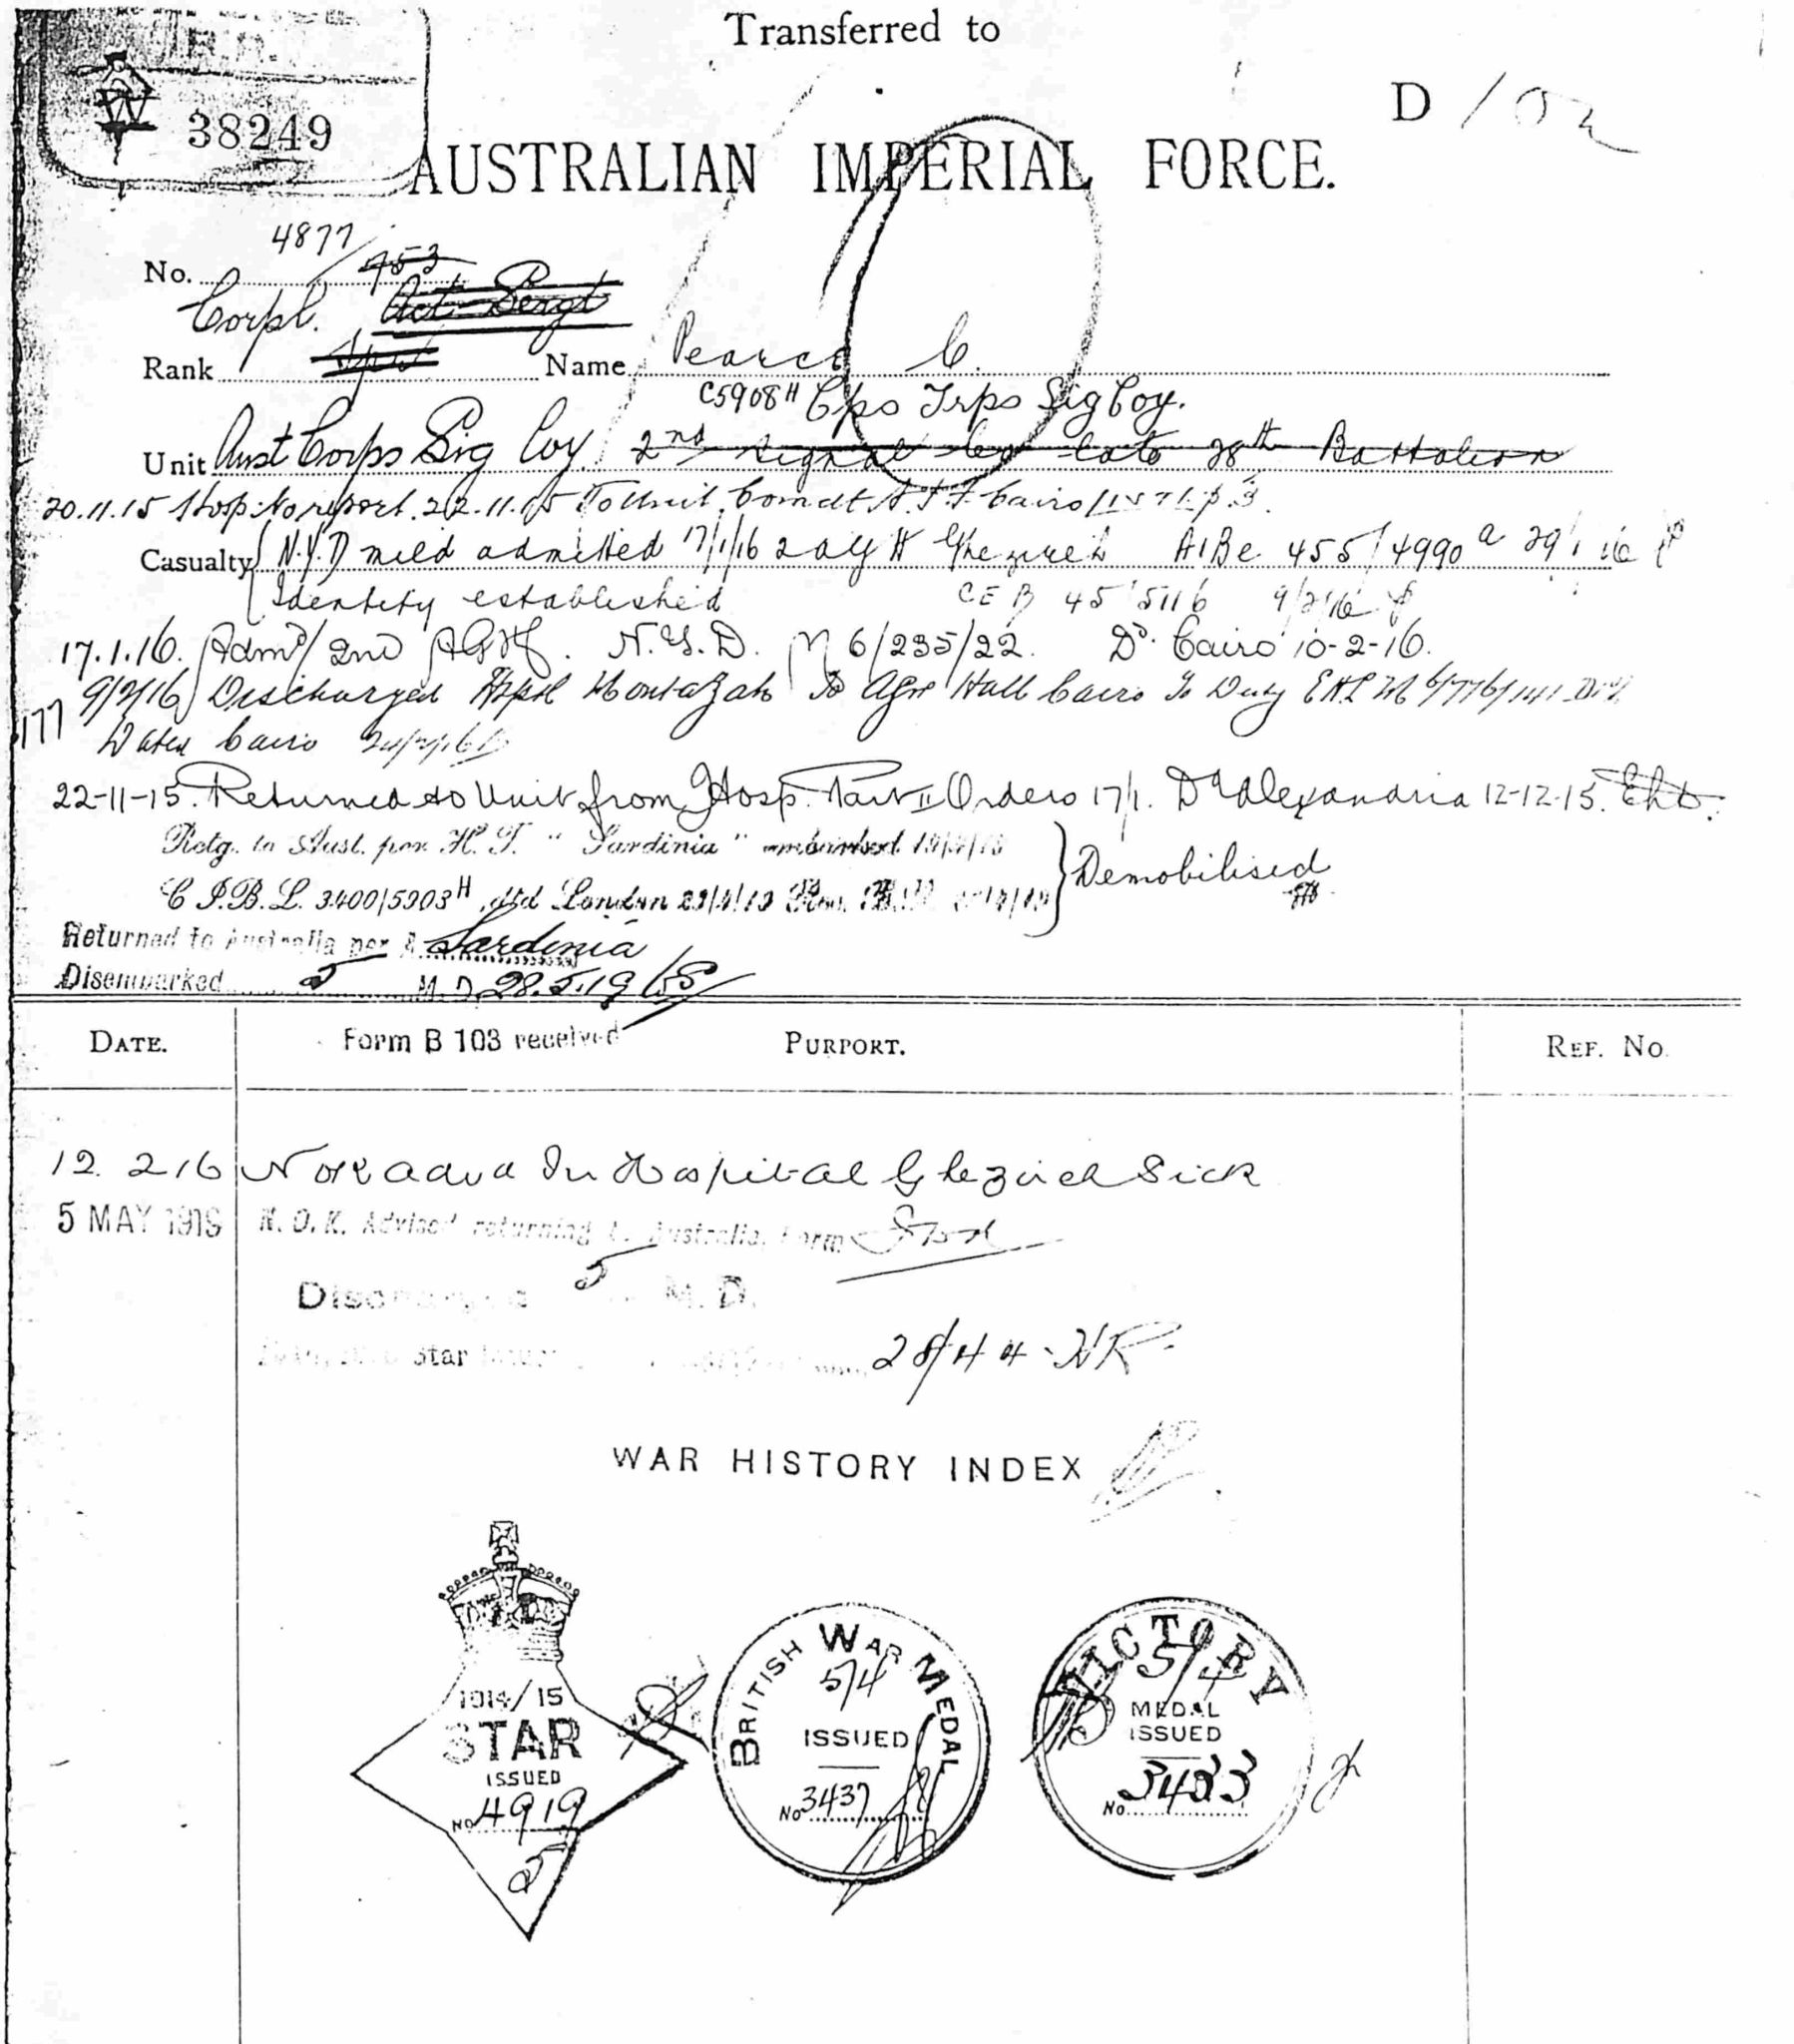 Transferred to
38249
D
AUSTRALIAN IMPERIAL FORCE.
4877/
No. 953
Corpl. Act Sergt
Rank Name Pearce C.
C5908H Cps Trps Sig Coy.
Unit Aust Corps Sig Coy. 2nd Signal Coy late 28th Battalion
20.11.15 Hosp. No report. 22.11.15 To Unit. Comdt A.I.F. Cairo
Casualty N.Y.D mild admitted 17/1/16 2 AGH Ghezireh 455/4990 29 1 16
Identity established 45 5116 9/2/16
17.1.16. Admd/ 2nd AGH. N.Y.D. M 6/235/22. Dd. Cairo 10-2-16.
9/2/16 Discharged Hspl Montazah To Hall Cairo To Duty
177 Dated Cairo
22-11-15. Returned to Unit from Hosp. Part II Orders 17/1. Dd Alexandria 12-12-15.
Retg. to Aust. per H.T. "Sardinia" embarked
Demobilised
dtd London
Returned to Australia per Sardinia
Disembarked 5 M.D. 28.5.19
DATE. Form B 103 received PURPORT. REF. No.
12. 2 16 N ok advd In Hospital Ghezireh Sick
5 MAY 1919 N.O.K. Advised returning to Australia. Form
Discharged 5 M.D.
Star 28/44
WAR HISTORY INDEX
1914/15
STAR
ISSUED
No 4919
5
BRITISH WAR MEDAL
5/4
ISSUED
No 3437
VICTORY
5/4
MEDAL
ISSUED
No 3433